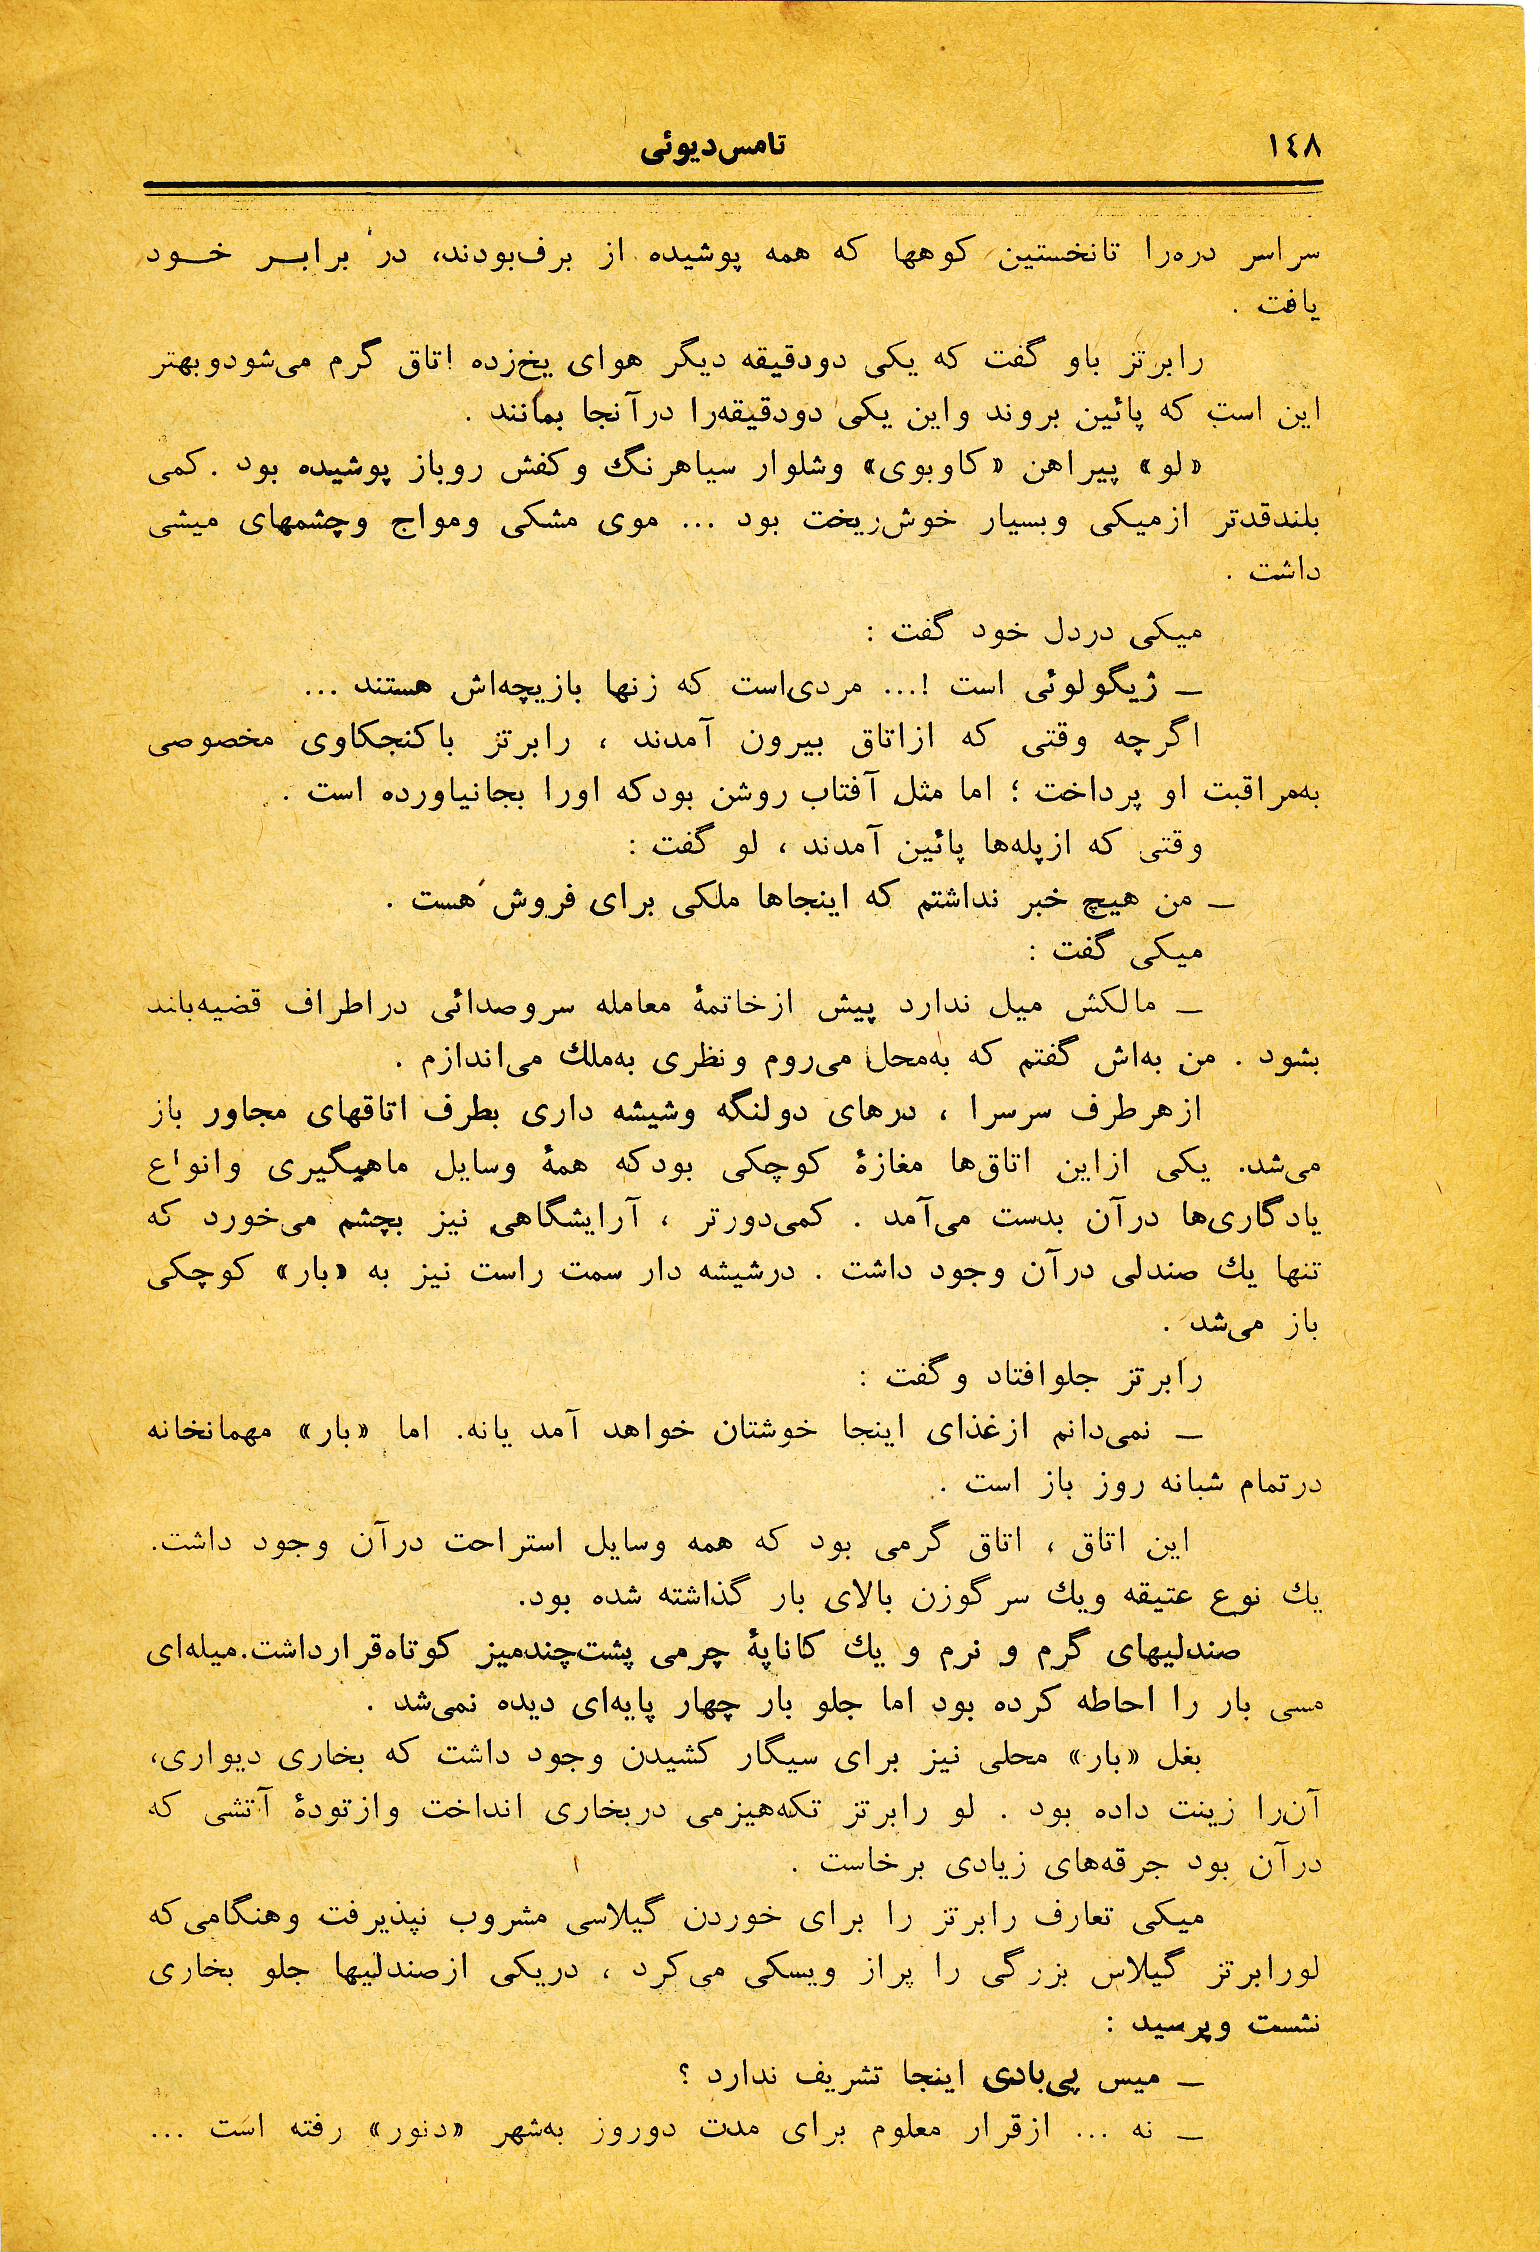 ١٤٨
تامس‌دیوئی
سراسر دره‌را تانخستین کوهها که همه پوشیده از برف‌بودند، در برابر خود
یافت .
رابرتز باو گفت که یکی دودقیقه دیگر هوای یخ‌زده اتاق گرم می‌شودوبهتر
این است که پائین بروند واین یکی دودقیقه‌را درآنجا بمانند .
«لو» پیراهن «کاوبوی» وشلوار سیاهرنگ وکفش روباز پوشیده بود .کمی
بلندقدتر ازمیکی وبسیار خوش‌ریخت بود ... موی مشکی ومواج وچشمهای میشی
داشت .
میکی دردل خود گفت :
ـ ژیگولوئی است !... مردی‌است که زنها بازیچه‌اش هستند ...
اگرچه وقتی که ازاتاق بیرون آمدند ، رابرتز باکنجکاوی مخصوصی
به‌مراقبت او پرداخت ؛ اما مثل آفتاب روشن بودکه اورا بجانیاورده است .
وقتی که ازپله‌ها پائین آمدند ، لو گفت :
ـ من هیچ خبر نداشتم که اینجاها ملکی برای فروش هست .
میکی گفت :
ـ مالکش میل ندارد پیش ازخاتمهٔ معامله سروصدائی دراطراف قضیه‌باند
بشود . من به‌اش گفتم که به‌محل می‌روم ونظری به‌ملك می‌اندازم .
ازهرطرف سرسرا ، درهای دولنگه وشیشه داری بطرف اتاقهای مجاور باز
می‌شد. یکی ازاین اتاق‌ها مغازهٔ کوچکی بودکه همهٔ وسایل ماهیگیری وانواع
یادگاری‌ها درآن بدست می‌آمد . کمی‌دورتر ، آرایشگاهی نیز بچشم می‌خورد که
تنها یك صندلی درآن وجود داشت . درشیشه دار سمت راست نیز به «بار» کوچکی
باز می‌شد .
رابرتز جلوافتاد وگفت :
ـ نمی‌دانم ازغذای اینجا خوشتان خواهد آمد یانه. اما «بار» مهمانخانه
درتمام شبانه روز باز است .
این اتاق ، اتاق گرمی بود که همه وسایل استراحت درآن وجود داشت.
یك نوع عتیقه ویك سرگوزن بالای بار گذاشته شده بود.
صندلیهای گرم و نرم و یك کاناپهٔ چرمی پشت‌چندمیز کوتاه‌قرارداشت.میله‌ای
مسی بار را احاطه کرده بود اما جلو بار چهار پایه‌ای دیده نمی‌شد .
بغل «بار» محلی نیز برای سیگار کشیدن وجود داشت که بخاری دیواری،
آن‌را زینت داده بود . لو رابرتز تکه‌هیزمی دربخاری انداخت وازتودهٔ آتشی که
درآن بود جرقه‌های زیادی برخاست .
میکی تعارف رابرتز را برای خوردن گیلاسی مشروب نپذیرفت وهنگامی‌که
لورابرتز گیلاس بزرگی را پراز ویسکی می‌کرد ، دریکی ازصندلیها جلو بخاری
نشست وپرسید :
ـ میس پی‌بادی اینجا تشریف ندارد ؟
ـ نه ... ازقرار معلوم برای مدت دوروز به‌شهر «دنور» رفته است ...